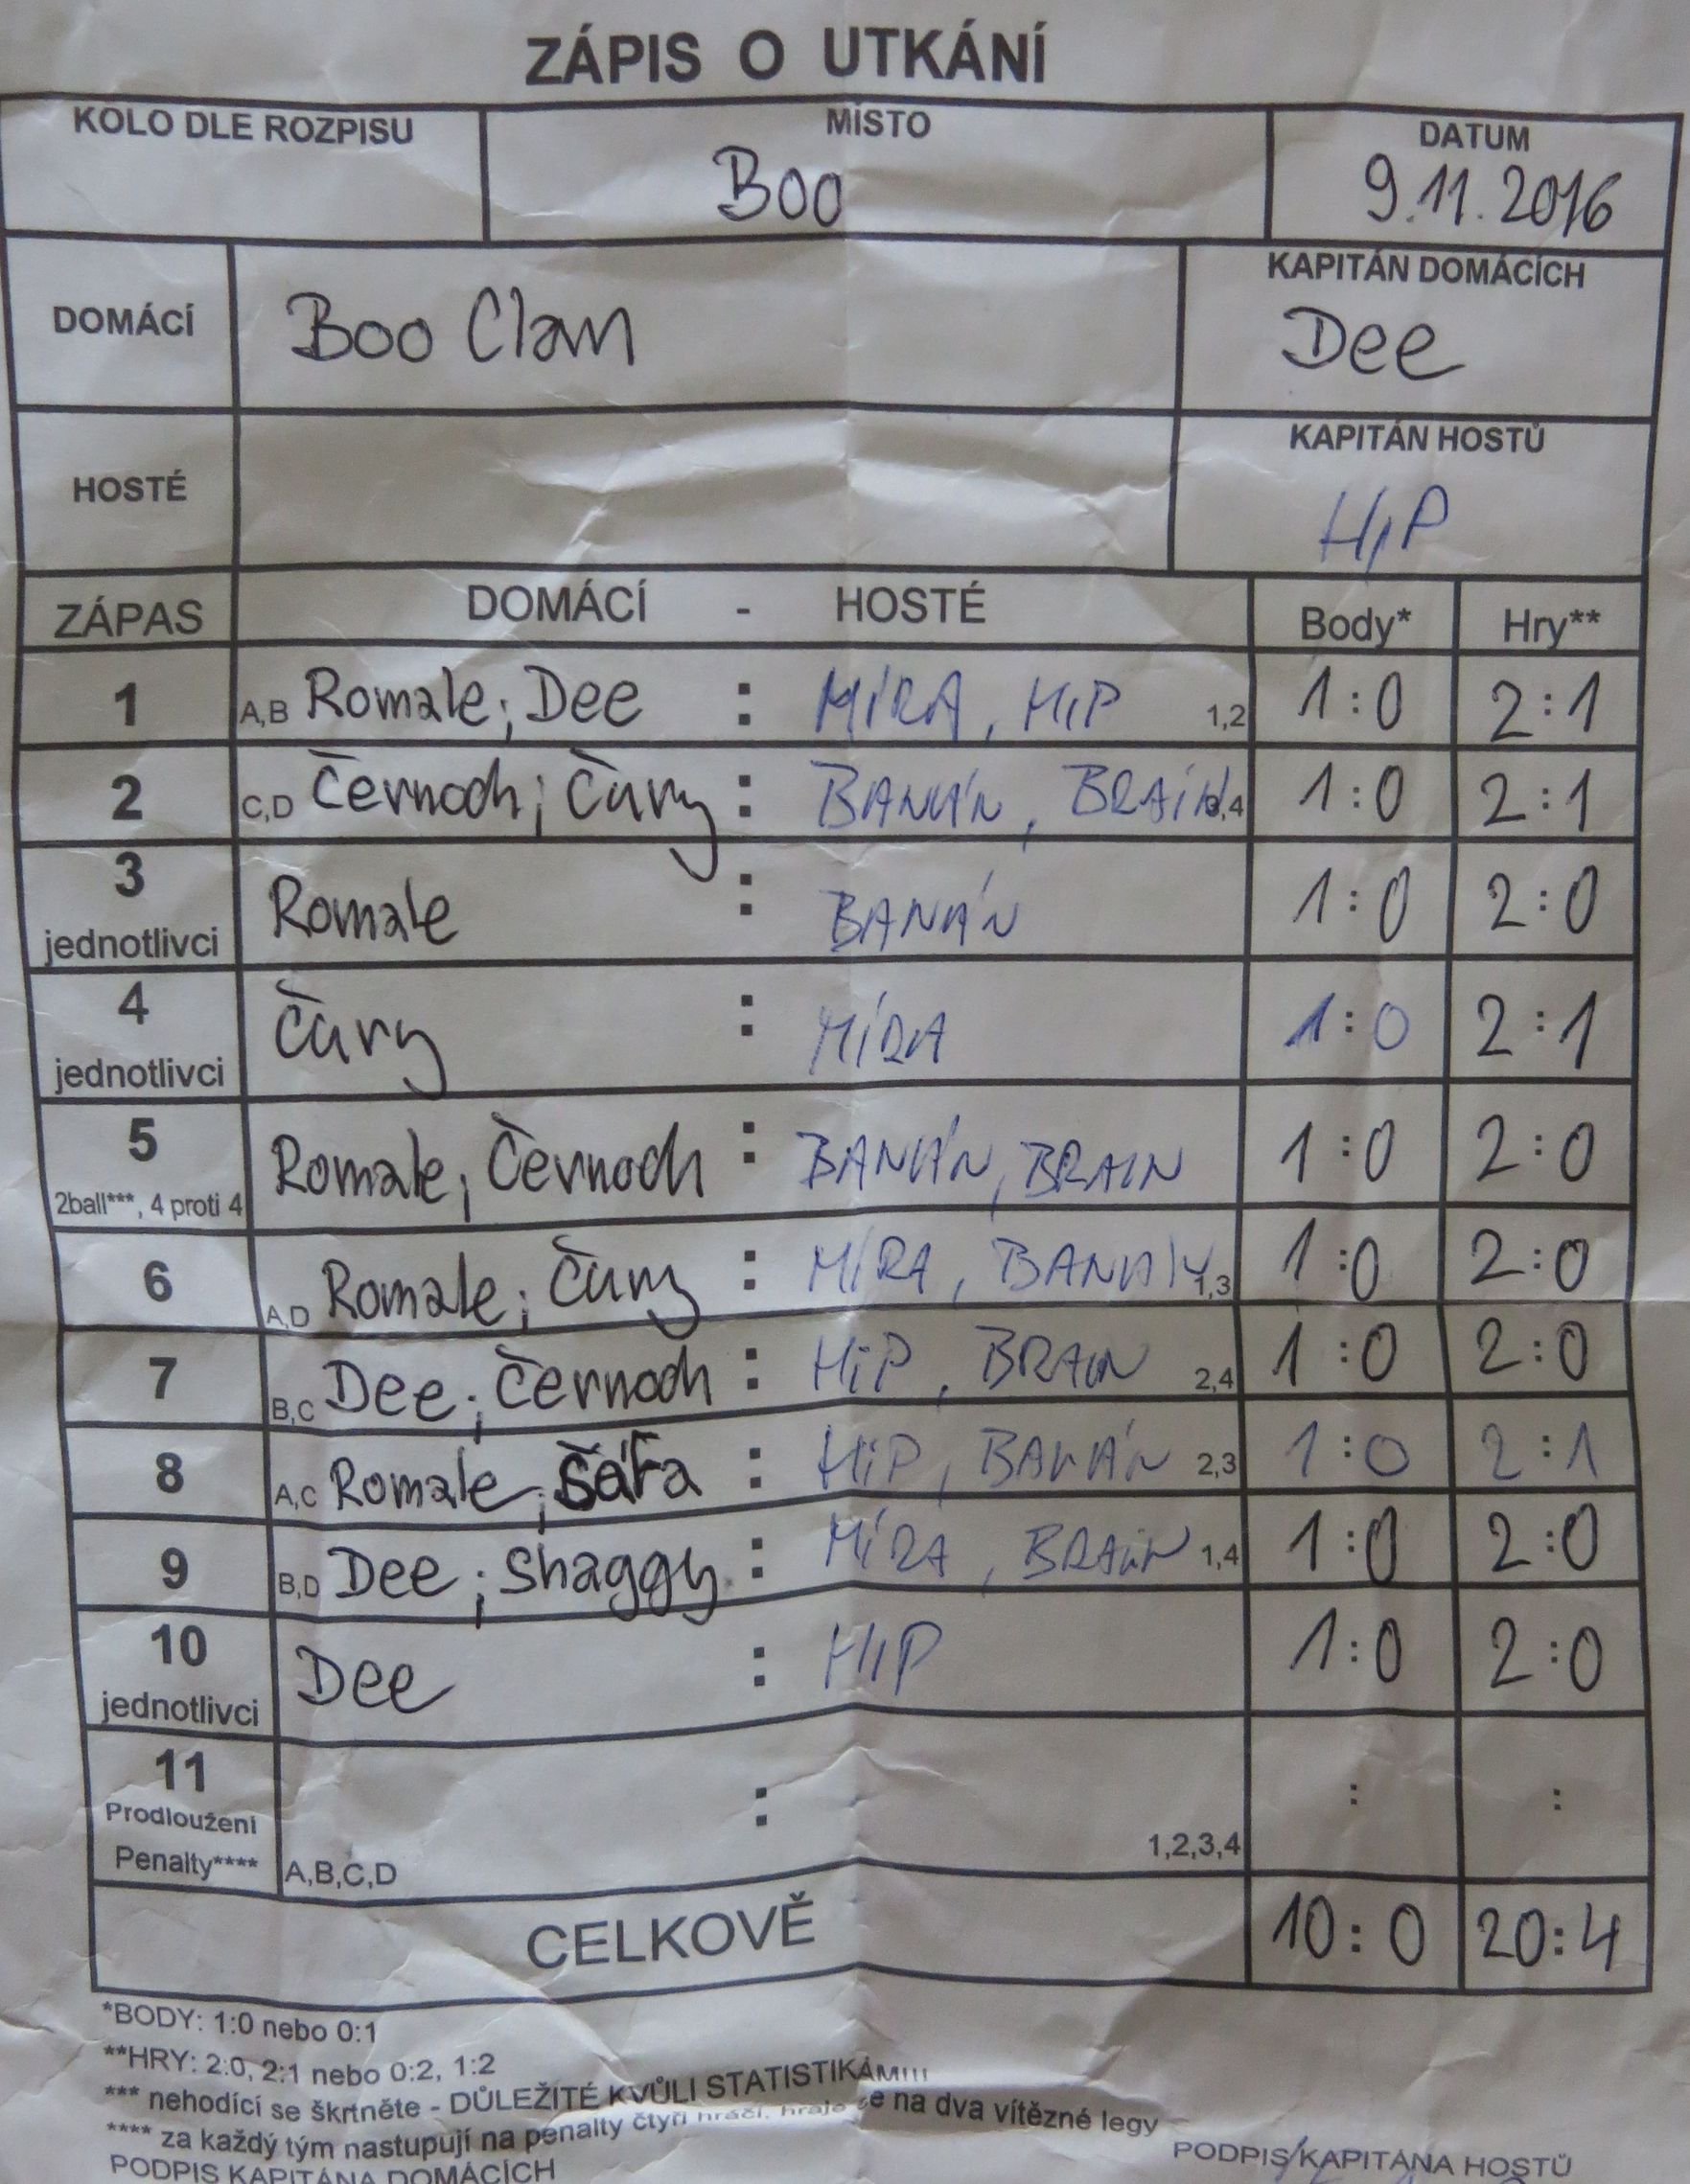 ZÁPIS O UTKÁNÍ
KOLO DLE ROZPISU MÍSTO DATUM
Boo 9.11.2016
DOMÁCÍ Boo Clan KAPITÁN DOMÁCÍCH
Dee
HOSTÉ KAPITÁN HOSTŮ
HiP
ZÁPAS DOMÁCÍ - HOSTÉ Body* Hry**
1 A,B Romale; Dee : MÍRA, HiP 1,2 1:0 2:1
2 C,D Černoch; Čury : BANÁN, BRAIN 3,4 1:0 2:1
3 jednotlivci Romale : BANÁN 1:0 2:0
4 jednotlivci Čury : MÍRA 1:0 2:1
5 2ball***, 4 proti 4 Romale; Černoch : BANÁN, BRAIN 1:0 2:0
6 A,D Romale; Čury : MÍRA, BANÁN 1,3 1:0 2:0
7 B,C Dee; Černoch : HiP, BRAIN 2,4 1:0 2:0
8 A,C Romale; Šářa : HiP, BANÁN 2,3 1:0 2:1
9 B,D Dee; Shaggy : MÍRA, BRAIN 1,4 1:0 2:0
10 jednotlivci Dee : HIP 1:0 2:0
11 Prodloužení : : :
Penalty**** A,B,C,D 1,2,3,4
CELKOVĚ 10:0 20:4
*BODY: 1:0 nebo 0:1
**HRY: 2:0, 2:1 nebo 0:2, 1:2
*** nehodící se škrtněte - DŮLEŽITÉ KVŮLI STATISTIKÁM!!!
**** za každý tým nastupují na penalty čtyři hráči, hraje se na dva vítězné legy
PODPIS KAPITÁNA DOMÁCÍCH PODPIS KAPITÁNA HOSTŮ